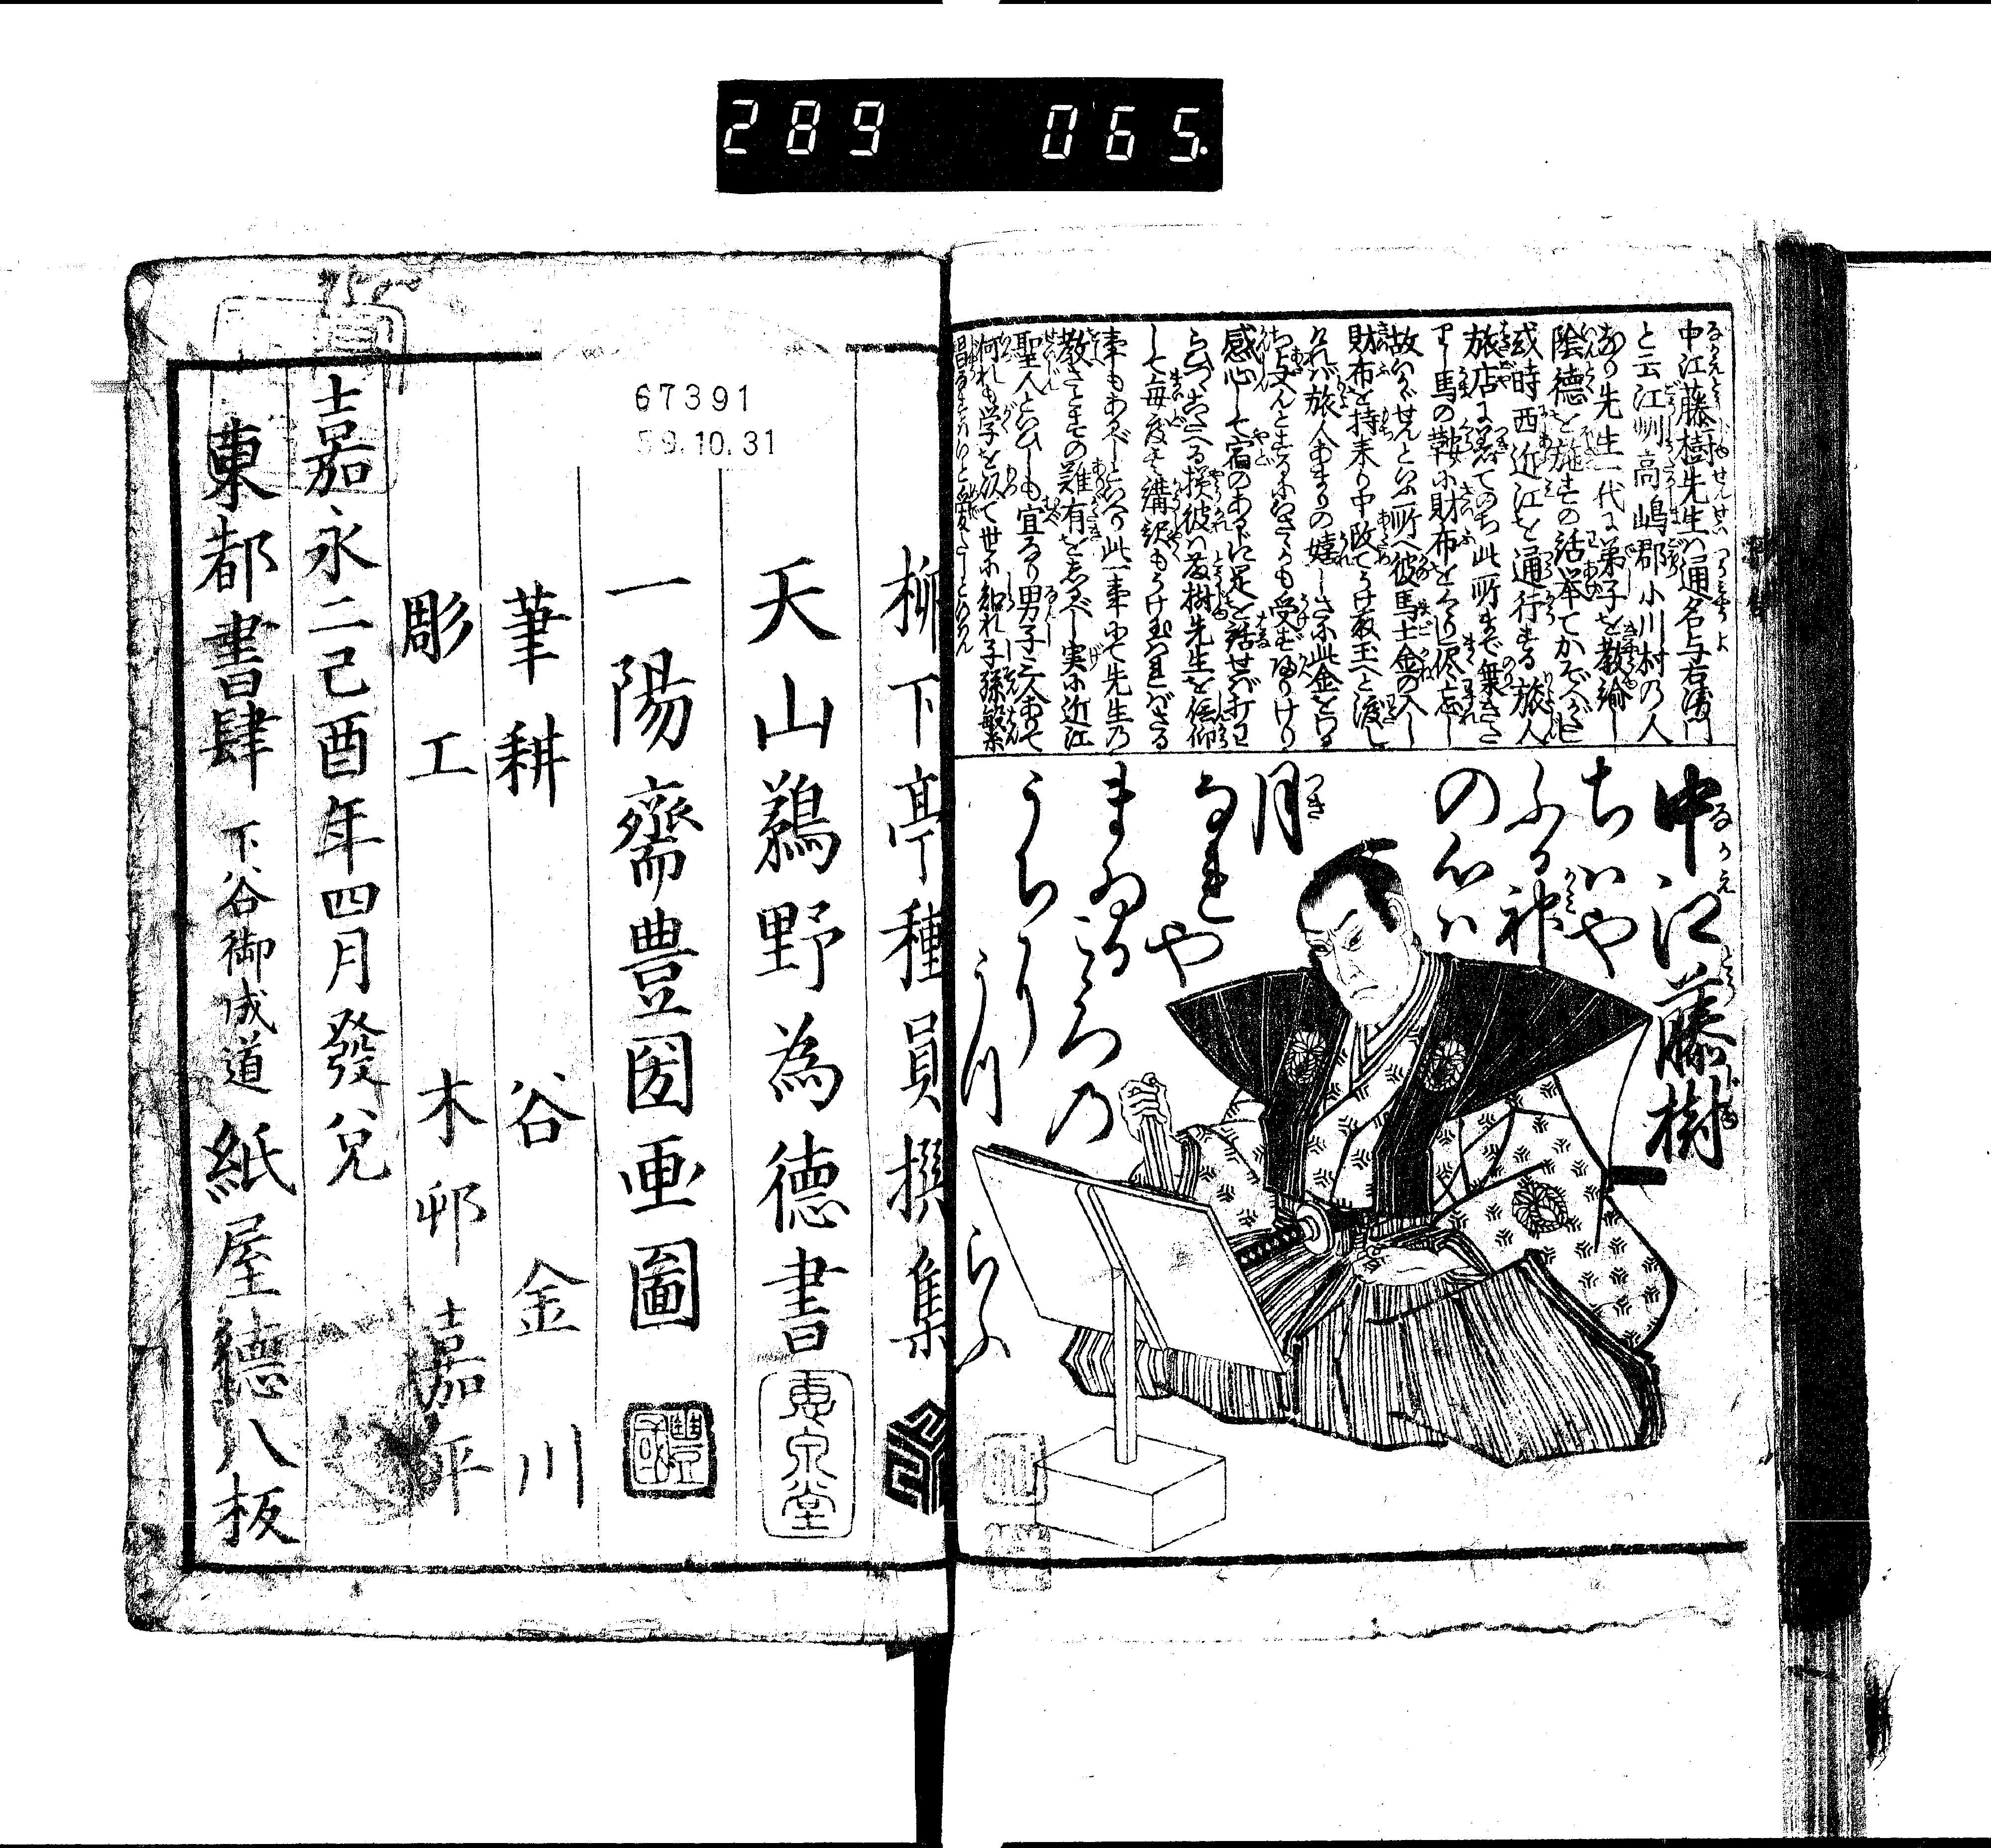 289 065.
中江藤樹先生ハ通名与右衛門
と云江州高嶋郡小川村の人
あり先生一代に弟子を教諭し
陰徳を施すの話挙てかぞへがたし
或時西近江を通行する旅人
旅店に着てのち此所まで乗きた
りし馬の鞍に財布をくゝり侭忘れし
故いかゞせんといふ所へ彼馬士金の入し
財布を持来り中改てうけ取玉へと渡し
けれバ旅人あまりの嬉しさに此金を
分与へんとするにいさゝかも受ずかへりけり
感心して宿のあるじに
彼ハ藤樹先生を信仰
して毎度講釈も
事もあるべしといへり此一事にて先生の
教さとすの難有をしるべし実に近江
聖人といひしも宜なり男子三人ありて
何れも学を以て世に知れ子孫繁
昌
中江藤樹
ちハや
ふる神
の心ハ
月
なれや
まゐる
こゝろの
うちに
うつ
らふ
柳下亭種員撰集
天山鵜野為徳書
恵泉堂
一陽齋豊国画圖
豊国
筆耕 谷金川
彫工 木邨嘉平
嘉永二己酉年四月發兌
東都書肆 下谷御成道 紙屋徳八板
67391
59.10.31